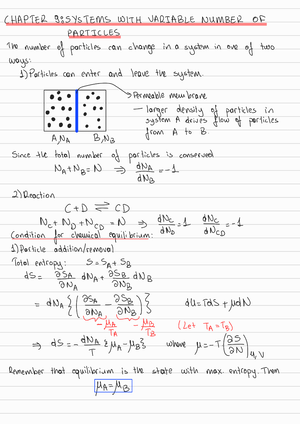 CHAPTER 9: SYSTEMS WITH VARIABLE NUMBER OF
PARTICLES
The number of particles can change in a system in one of two
ways:
1) Particles can enter and leave the system.
Permeable membrane
– larger density of particles in
system A drives flow of particles
from A to B
A, N_A B, N_B
Since the total number of particles is conserved
N_A + N_B = N ⇒ dN_A/dN_B = -1
2) Reaction
C + D ⇌ CD
N_C + N_D + N_CD = N ⇒ dN_C/dN_D = 1 dN_C/dN_CD = -1
Condition for chemical equilibrium:
1) Particle addition/removal
Total entropy: S = S_A + S_B
dS = ∂S_A/∂N_A dN_A + ∂S_B/∂N_B dN_B
= dN_A {(∂S_A/∂N_A - ∂S_B/∂N_B)} dU = TdS + μdN
-μ_A/T_A -μ_B/T_B (Let T_A = T_B)
⇒ dS = -dN_A/T {μ_A - μ_B} where μ = -T(∂S/∂N)_U,V
Remember that equilibrium is the state with max. entropy. Then
μ_A = μ_B